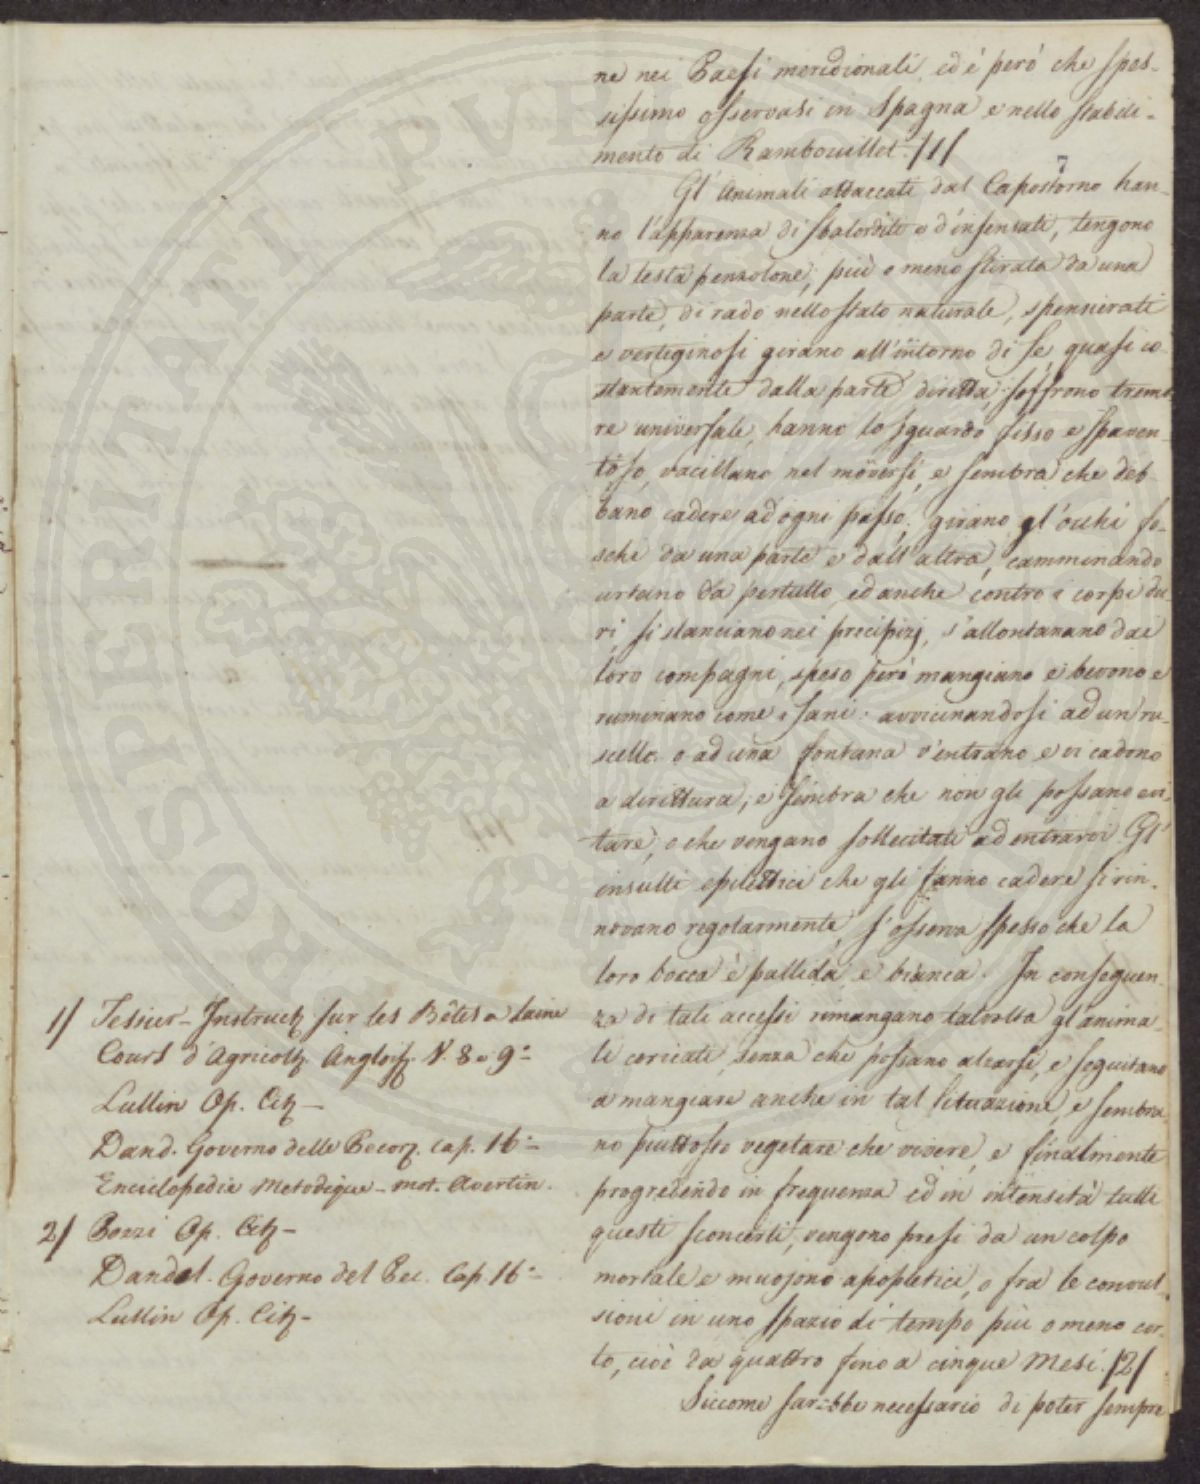 ne nei Paesi meridionali, ed è però che spes-
sissimo osservasi in Spagna e nello stabili-
mento di Rambouillet. /1/
7
Gl'Animali attaccati dal Capostorno han-
no l'apparenza di sbalorditi o d'insensati, tengono
la testa penzolone, più o meno stirata da una
parte, di rado nello stato naturale, spensierati
e vertiginosi girano all'intorno di se, quasi co-
stantemente dalla parte diritta; soffrono tremo
re universale, hanno lo sguardo fisso e spaven-
toso, vacillano nel moversi, e sembra che deb-
bano cadere ad ogni passo. girano gl'occhi fo-
schi da una parte e dall'altra, camminando
urtano da pertutto, ed anche contro i corpi du-
ri, si slanciano nei precipizj, s'allontanano dai
loro compagni, speso però mangiano e bevono e
ruminano come i sani: avvicinandosi ad un ru-
scello o ad una fontana v'entrano e vi cadono
a dirittura; e sembra che non gli possano evi-
tare, o che vengano sollecitati ad entrarvi. Gl'
insulti epilettici che gli fanno cadere si rin-
novano regolarmente, s'osserva spesso che la
loro bocca è pallida e bianca. In conseguen-
za di tali accessi rimangano talvolta gl'anima-
li coricati, senza che possano alzarsi, e seguitano
a mangiare anche in tal situazione, e sembra-
no piuttosto vegetare che vivere, e finalmente
progredendo in frequenza ed in intensità tutti
questi sconcerti, vengono presi da un colpo
mortale e muojono apopletici, o fra le convul-
sioni in uno spazio di tempo più o meno cor-
to, cioè da quattro fino a cinque Mesi. /2/
Siccome sarebbe necessario di poter sempre
1/ Tessier - Instruct. sur les Bêtes a Laine
Cours d'Agricolt. Angloise. V. 8. 9.
Lullin Op. Cit. -
Dand. Governo delle Pecore. Cap. 16. -
Enciclopedie Metodique - mot. Avertin.
2/ Bozzi Op. Cit. -
Dandol. Governo del Pec. Cap. 16. -
Lullin Op. Cit. -
PROSPERITATI PUBLICAE